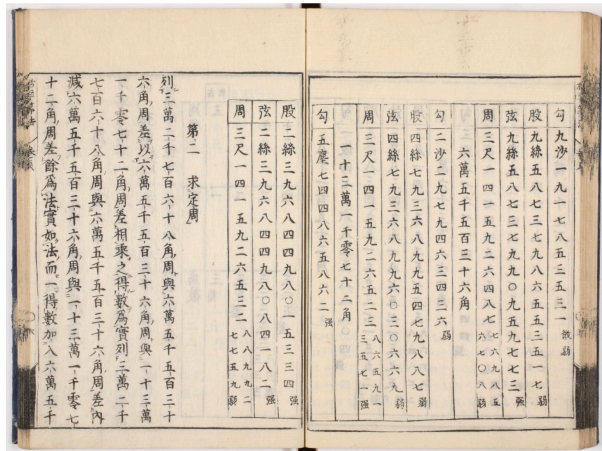 勾 九沙一九一七八五三五三一 微弱
股 九絲五八七三七九八六五五三五一七 弱
弦 九絲五八七三七九九〇九五九七七三 強
周 三尺一四一五九二六四八七 七六九八五六七〇八 弱
六萬五千五百三十六角
勾 二沙二九七九四六三四三六 弱
股 四絲七九三六八九九五四七九八八七 弱
弦 四絲七九三六八九九六〇三〇六六九 弱
周 三尺一四一五九二六五二三 八六五九一三五七一 強
一十三萬一千零七十二角
勾 五塵七四四八六五八六二 強
股 二絲三九六八四四九八〇一五三三四 強
弦 二絲三九六八四四九八〇八四一八二 強
周 三尺一四一五九二六五三二 八八九九二七七五九 弱
第二 求定周
列三萬二千七百六十八角周與六萬五千五百三十
六角周差以六萬五千五百三十六角周與一十三萬
一千零七十二角周差相乗之得數爲實列三萬二千
七百六十八角周與六萬五千五百三十六角周差内
減六萬五千五百三十六角周與一十三萬一千零七
十二角周差餘爲法實如法而一得數加入六萬五千